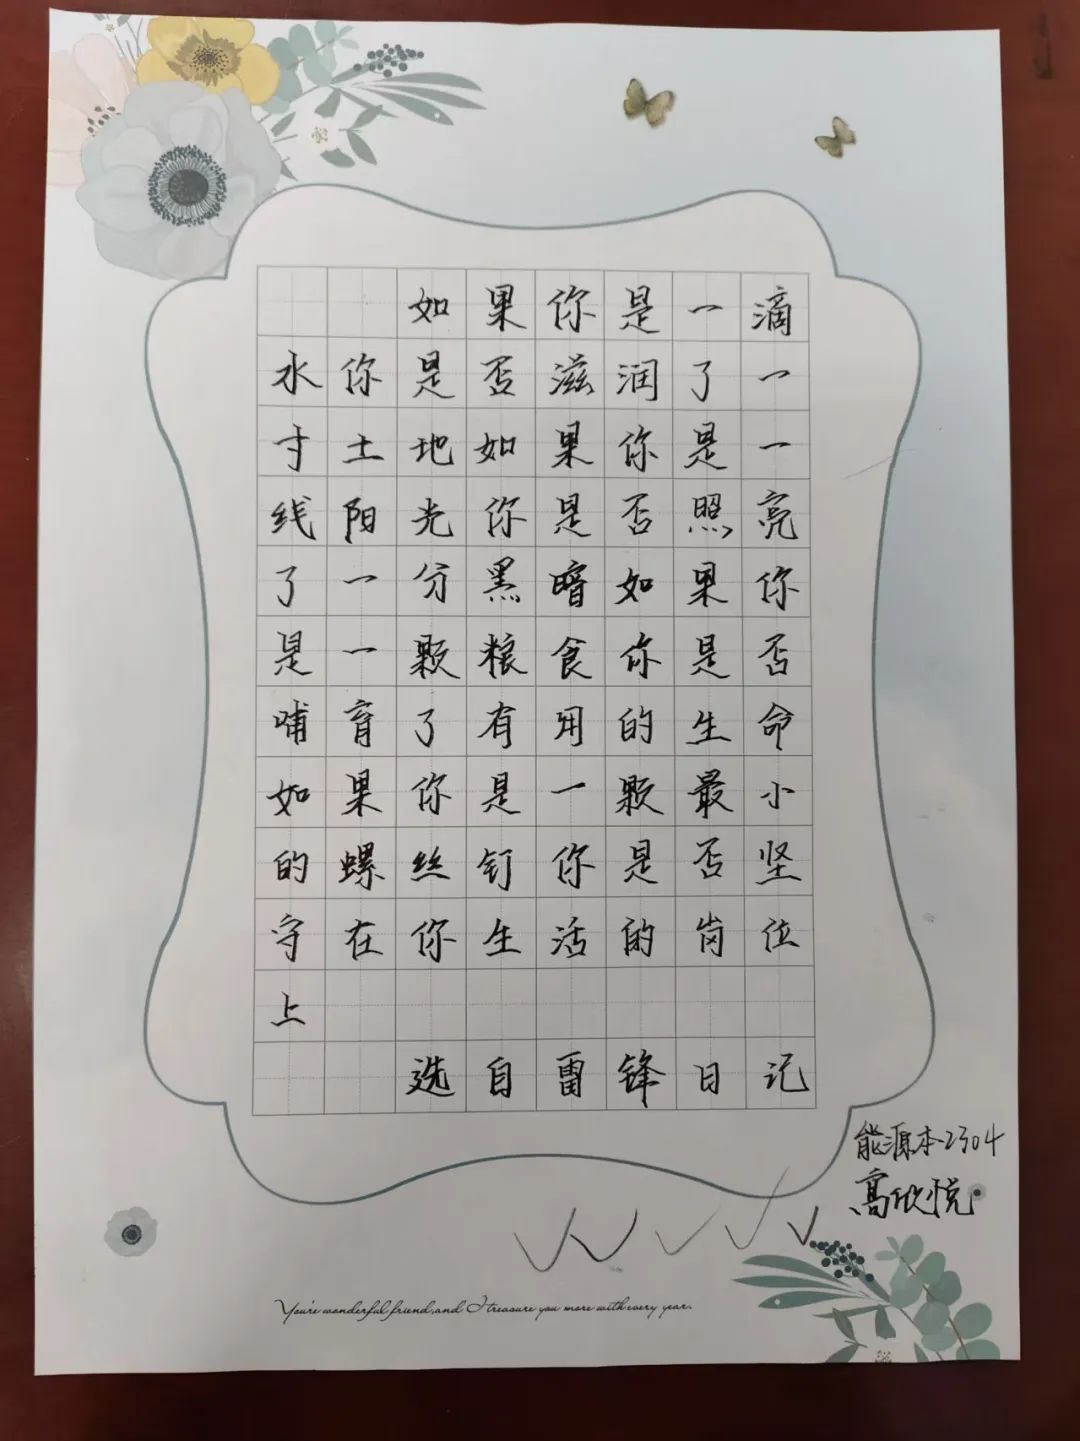 如果你是一滴
水你是否滋润了一
寸土地如果你是一
线阳光你是否照亮
了一分黑暗如果你
是一颗粮食你是否
哺育了有用的生命
如果你是一颗最小
的螺丝钉你是否坚
守在你生活的岗位
上
选自雷锋日记
能源本2304
高欣悦
You're wonderful friend,and I treasure you more with every year.